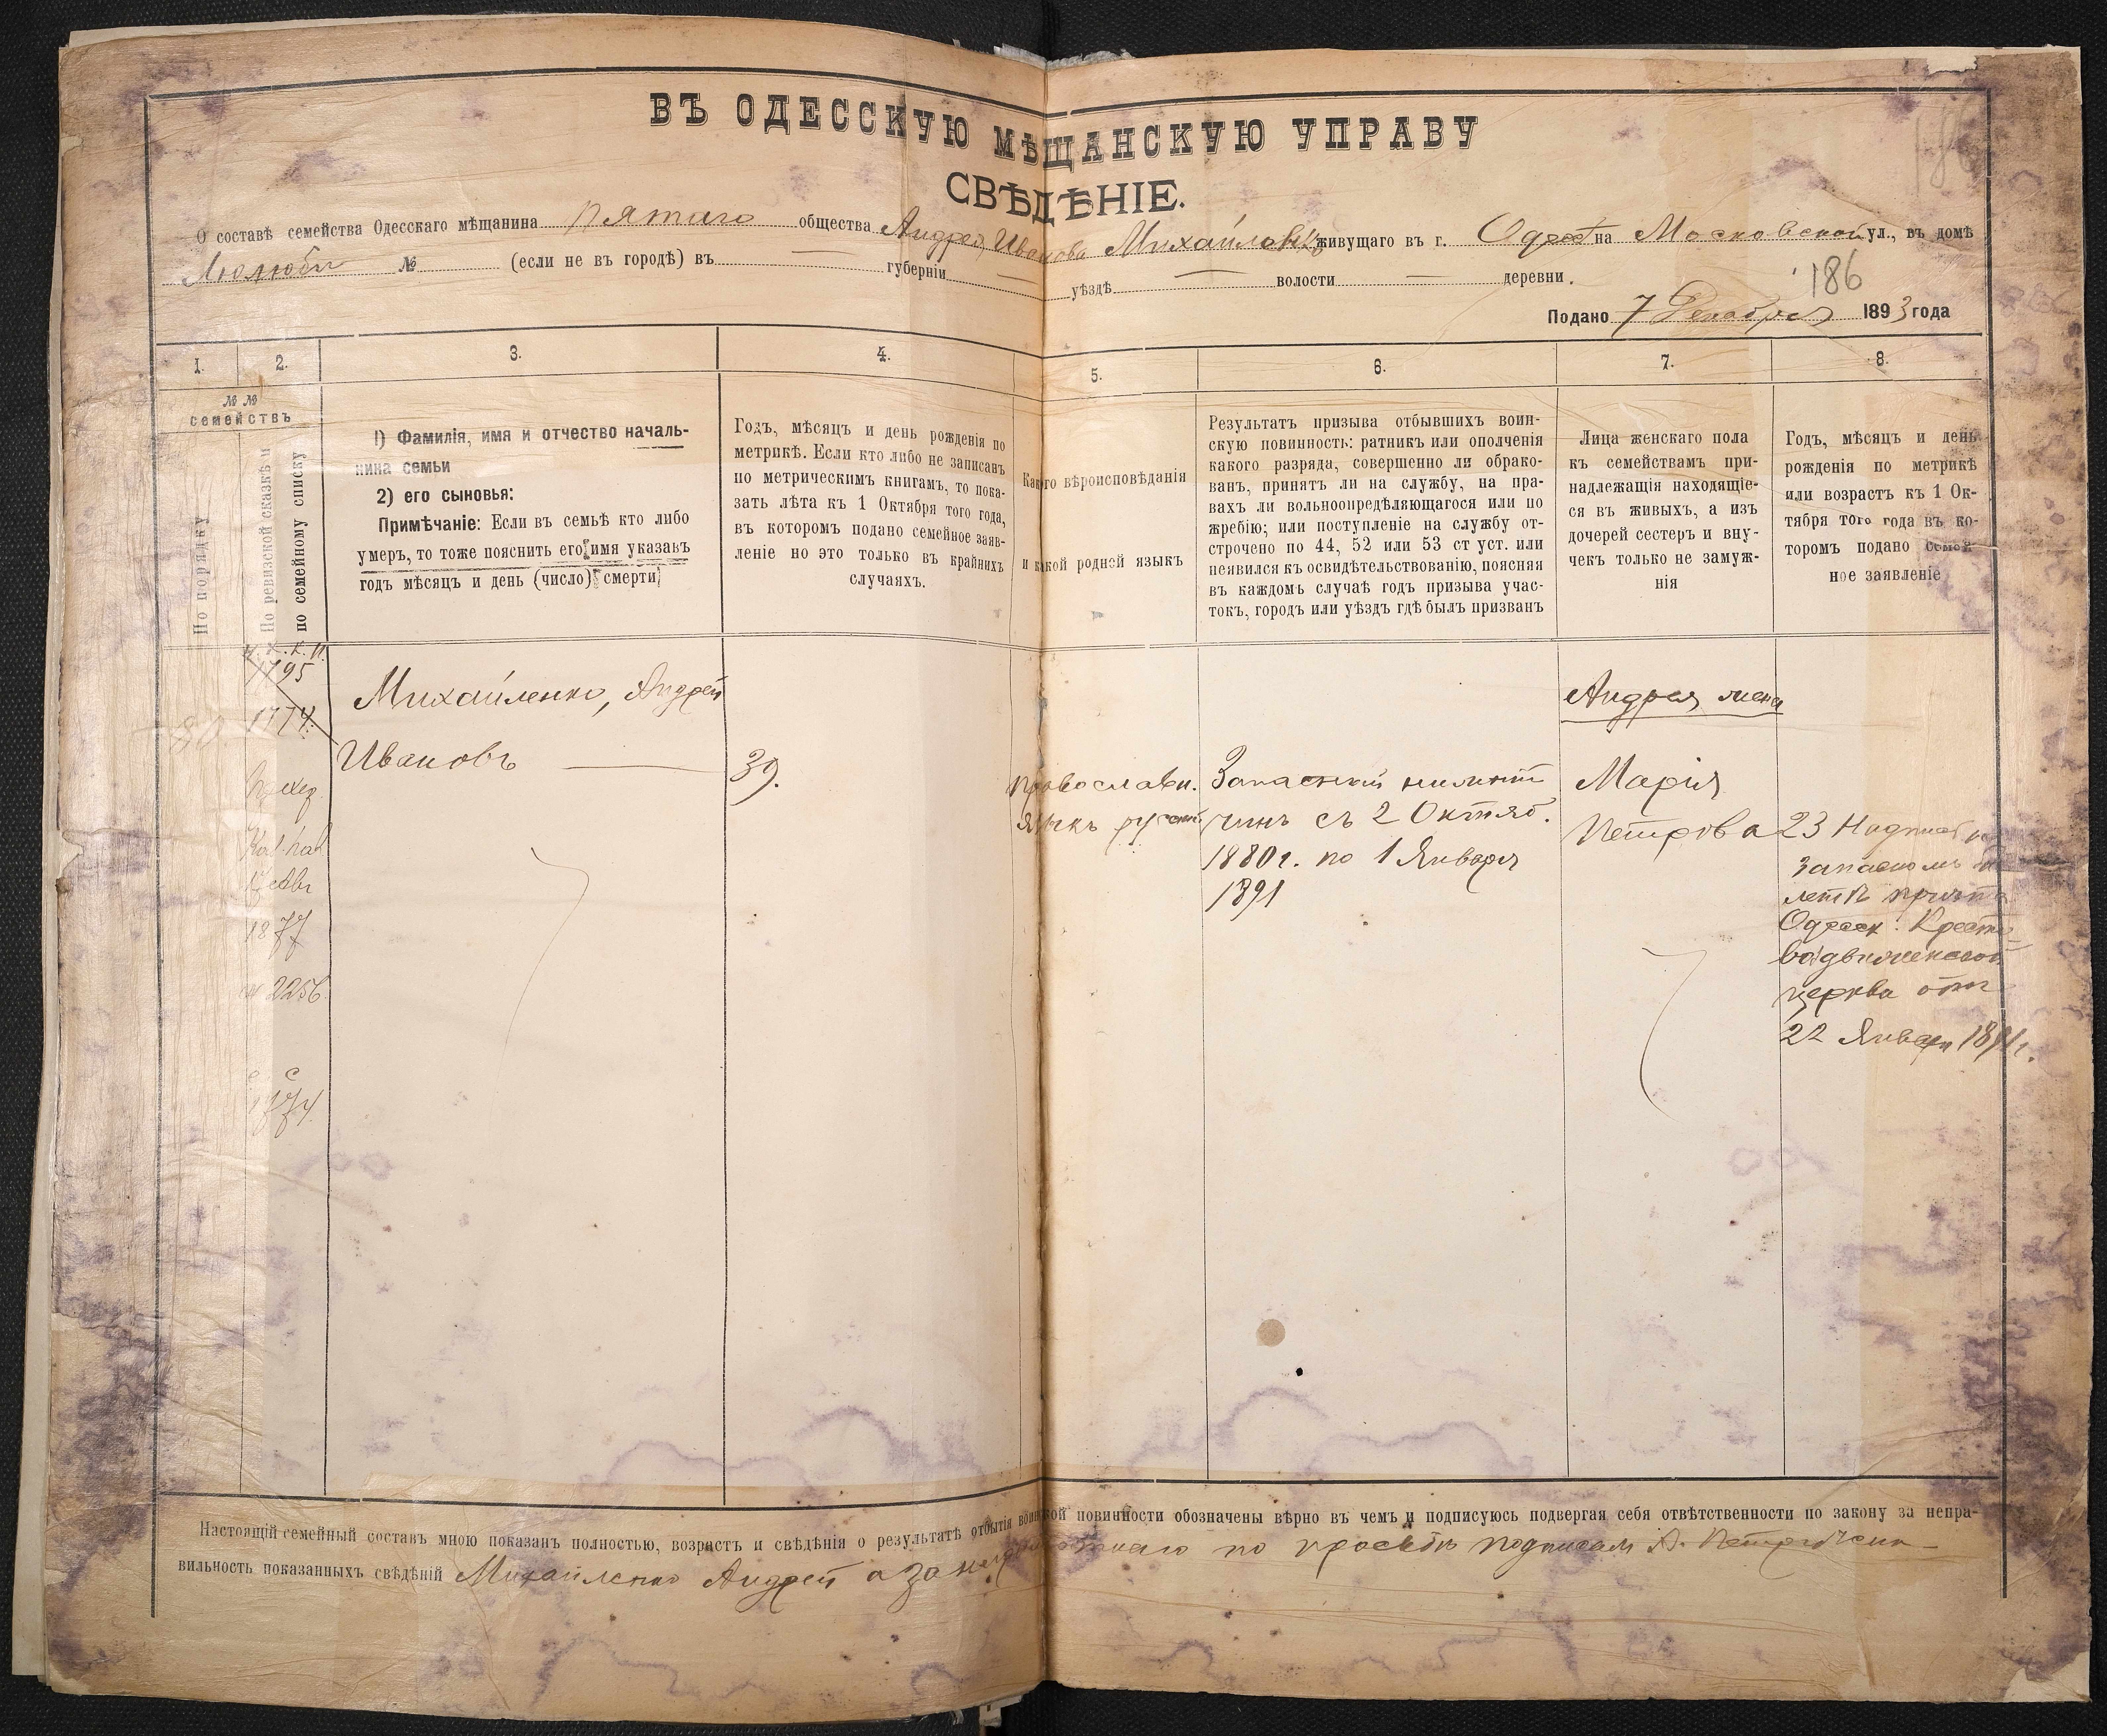 ВЪ ОДЕССКУЮ МѢЩАНСКУЮ УПРАВУ
СВѢДѢНІЕ.
О составѣ семейства Одесскаго мѣщанина пятаго общества Андрея Иванова живущаго въ г. Одес на Московской ул., въ домѣ
№ (если не въ городѣ) въ — губерніи — уѣздѣ — волости — деревни.
186
Подано 7 Декабря 1893 года
1. 2. 3. 4. 5. 6. 7. 8.
№ №
семействъ
По порядку
По ревизской сказкѣ и
по семейному списку
1) Фамилія, имя и отчество началь-
нина семьи
2) его сыновья:
Примѣчаніе: Если въ семьѣ кто либо
умеръ, то тоже пояснить его имя указавъ
годъ мѣсяцъ и день (число) смерти
Годъ, мѣсяцъ и день рожденія по
метрикѣ. Если кто либо не записанъ
по метрическимъ книгамъ, то пока-
зать лѣта къ 1 Октября того года,
въ которомъ подано семейное заяв-
леніе но это только въ крайнихъ
случаяхъ.
Какого вѣроисповѣданія
и какой родной языкъ
Результатъ призыва отбывшихъ воин-
скую повинность: ратникъ или ополченія
какого разряда, совершенно ли обрако-
ванъ, принятъ ли на службу, на пра-
вахъ ли вольноопредѣляющагося или по
жребію; или поступленіе на службу от-
строчено по 44, 52 или 53 ст уст. или
неявился къ освидѣтельствованію, поясняя
въ каждомъ случаѣ годъ призыва учас-
токъ, городъ или уѣздъ гдѣ былъ призванъ
Лица женскаго пола
къ семействамъ при-
надлежащія находящіе-
ся въ живыхъ, а изъ
дочерей сестеръ и вну-
чекъ только не замуж-
нія
Годъ, мѣсяцъ и день
рожденія по метрикѣ
или возрастъ къ 1 Ок-
тября того года въ ко-
торомъ подано семей-
ное заявленіе
1795
1774.
1877
2256
1774
Михайленко, Андрей
Ивановъ —
39.
православн.
языкъ русскій
Запасный нижній
чинъ съ 2 Октяб.
1880г. по 1 Января
1891
Андрея жена
Марія
Петрова
23
запасномъ
Одесск. Кресто-
воздвиженской
церкви отъ
22 Января 1891г.
Настоящій семейный составъ мною показанъ полностью, возрастъ и свѣдѣнія о результатѣ отбытія воинской повинности обозначены вѣрно въ чемъ и подписуюсь подвергая себя отвѣтственности по закону за непра-
вильность показанныхъ свѣдѣній Михайленко Андрей а за неграмотнаго по просьбѣ подписалъ